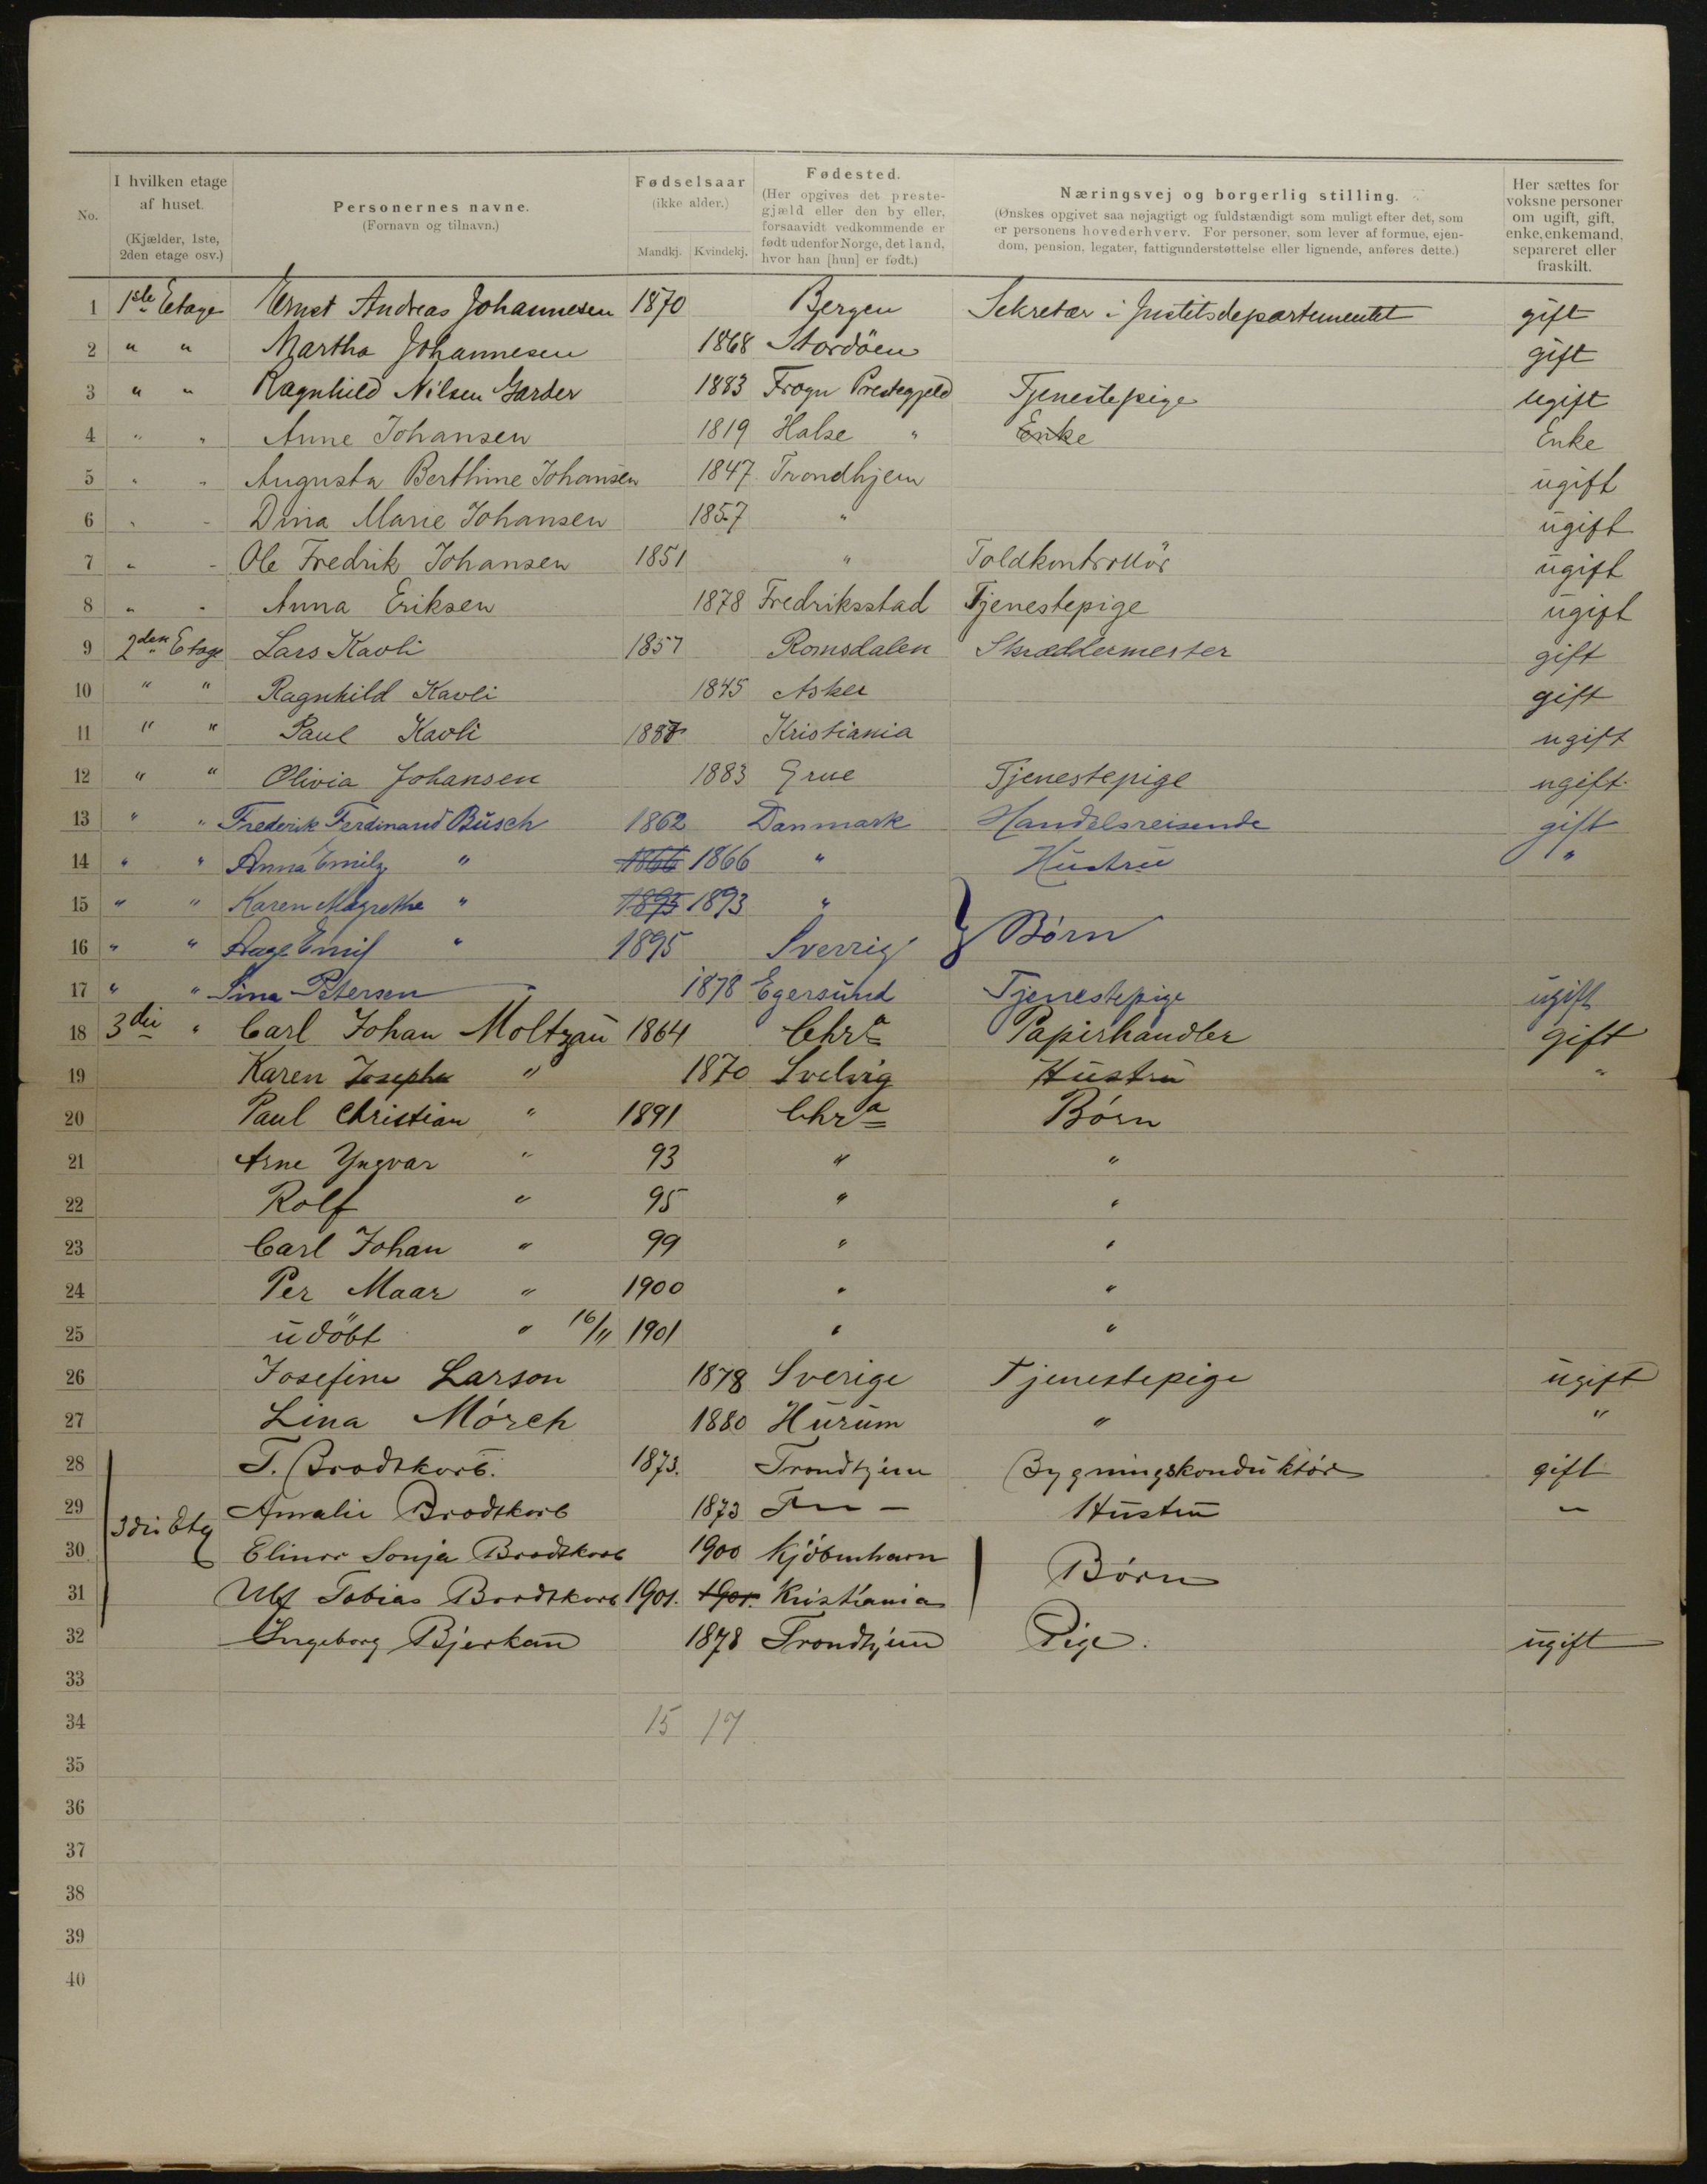 No.
I hvilken etage af huset. (Kjælder, 1ste, 2den etage osv.)
Personernes navne. (Fornavn og tilnavn.)
Fødselsaar (ikke alder.) Mandkj. Kvindekj.
Fødested. (Her opgives det prestegjæld eller den by eller, forsaavidt vedkommende er født udenfor Norge, det land, hvor han [hun] er født.)
Næringsvej og borgerlig stilling. (Ønskes opgivet saa nøjagtigt og fuldstændigt som muligt efter det, som er personens hovederhverv. For personer, som lever af formue, ejendom, pension, legater, fattigunderstøttelse eller lignende, anføres dette.)
Her sættes for voksne personer om ugift, gift, enke, enkemand, separeret eller fraskilt.
1 1ste Etage Ernst Andreas Johannesen 1870 Bergen Sekretær i Justitsdepartementet gift
2 " " Martha Johannesen 1868 Stordöen gift
3 " " Ragnhild Nilsen Garder 1883 Frogn Prestegjeld Tjenestepige ugift
4 " " Anne Johansen 1819 Halse " Enke Enke
5 " " Augusta Berthine Johansen 1847 Trondhjem ugift
6 " " Dina Marie Johansen 1857 " ugift
7 " " Ole Fredrik Johansen 1851 " Toldkontrollör ugift
8 " " Anna Eriksen 1878 Fredriksstad Tjenestepige ugift
9 2den Etage Lars Kavli 1857 Romsdalen Skræddermester gift
10 " " Ragnhild Kavli 1845 Asker gift
11 " " Paul Kavli Kristiania ugift
12 " " Olivia Johansen 1883 Grue Tjenestepige ugift
13 " " Frederik Ferdinand Busch 1862 Danmark Handelsreisende gift
14 " " Anna Emily " 1866 1866 " Hustru "
15 " " Karen Magrethe " 1893 1893 "
16 " " Aage Emil " 1895 Sverrig } Børn
17 " " Sina Petersen 1878 Egersund Tjenestepige ugift
18 3die " Carl Johan Moltzau 1864 Chra Papirhandler gift
19 Karen Josepha " 1870 Svelvig Hustru "
20 Paul Christian " 1891 Chra Børn
21 Arne Yngvar " 93 " "
22 Rolf " 95 " "
23 Carl Johan " 99 " "
24 Per Maar " 1900 " "
25 udöbt " 16/11 1901 " "
26 Josefine Larson 1878 Sverige Tjenestepige ugift
27 Lina Mórch 1880 Hurum " "
28 T. Brodtkorb. 1873. Trondhjem Bygningskonduktór gift
29 3die Etg Amalie Brodtkorb 1873 T— — Hustru "
30 Elinor Sonja Brodtkorb 1900 Kjöbenhavn
31 Ulf Tobias Brodtkorb 1901. 1901. Kristiania Børn
32 Ingeborg Bjerkan 1878 Trondhjem Pige. ugift
33
34 15 17
35
36
37
38
39
40